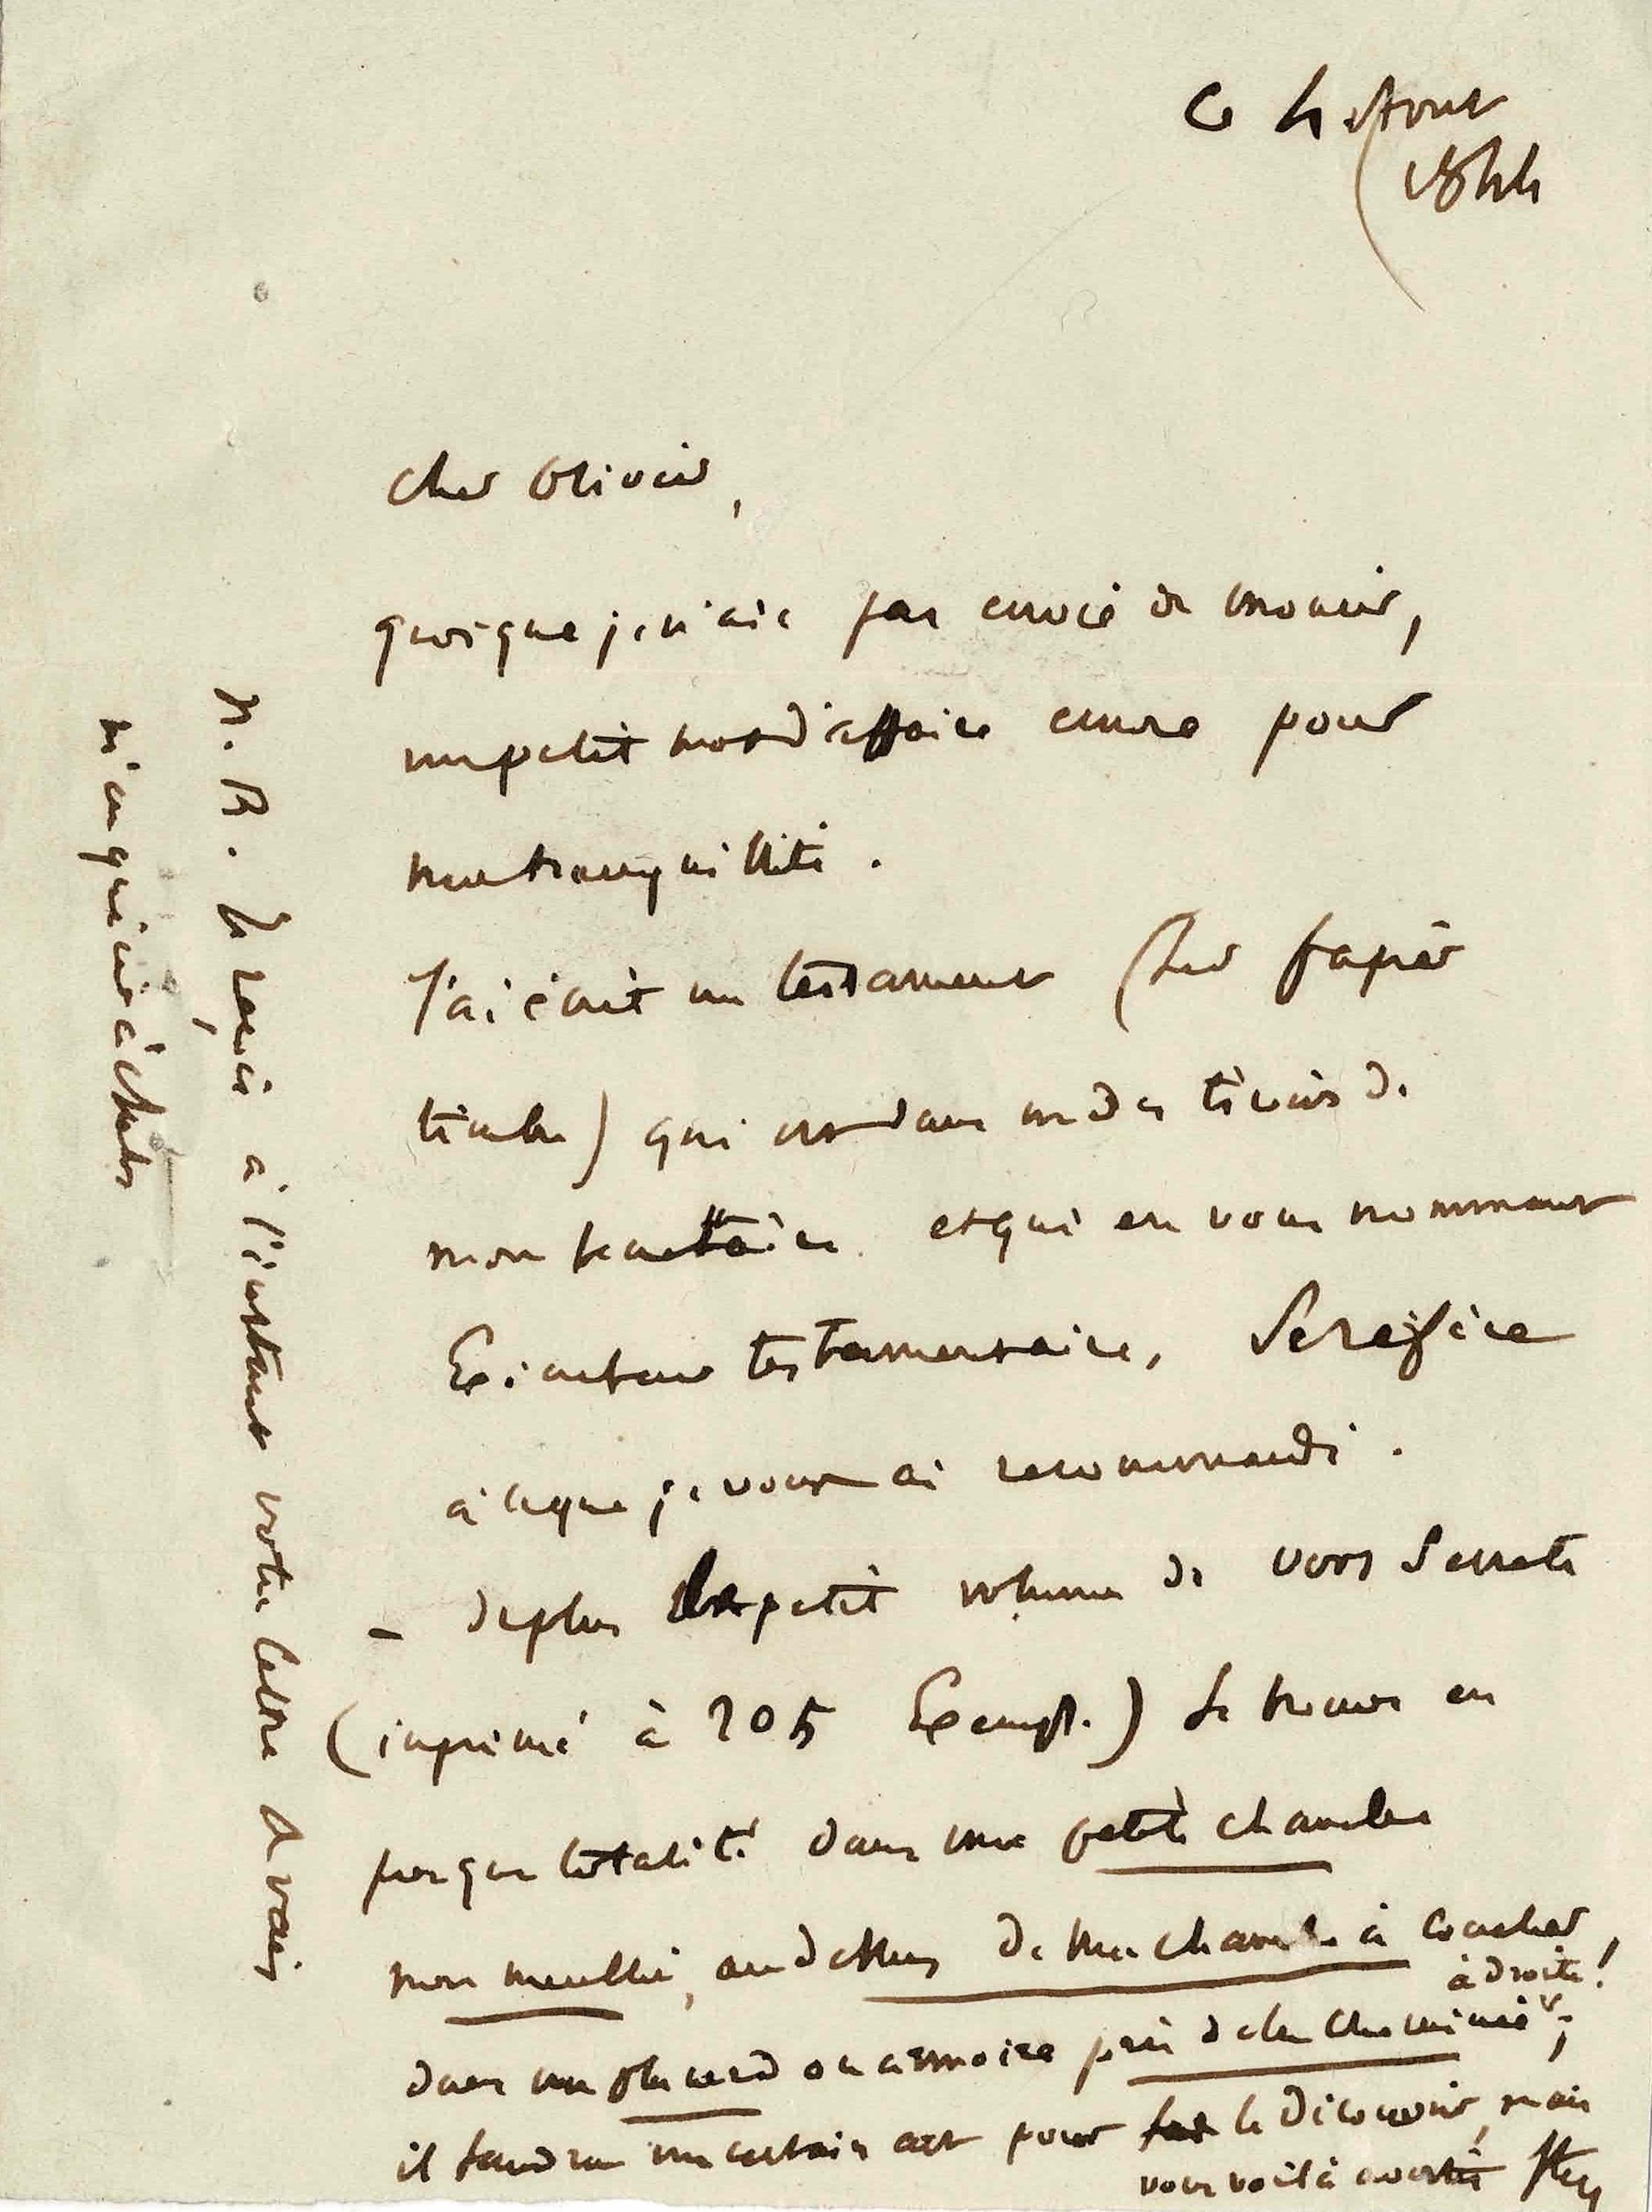 Ce 4 Aout
1844
Cher Olivier,
quoique je n'aie pas envie de mourir,
un petit mot d'affaire encore pour
ma tranquillité.
J'ai écrit un testament (sur papier
timbré) qui est dans un des tiroirs de
mon secrétaire et qui en vous nommant
Exécuteur testamentaire, se réfère
à ce que je vous ai recommandé.
– de plus le petit volume de vers secrets
(imprimé à 205 Exempl.) se trouve en
presque totalité dans une petite chambre
non meublée, au dessus de ma chambre à coucher,
dans un placard ou armoire près de la cheminée à droite! ;
il faudra un certain art pour le découvrir, mais
vous voilà averti
N.B. Je reçois à l'instant votre lettre & vais
m'enquérir à